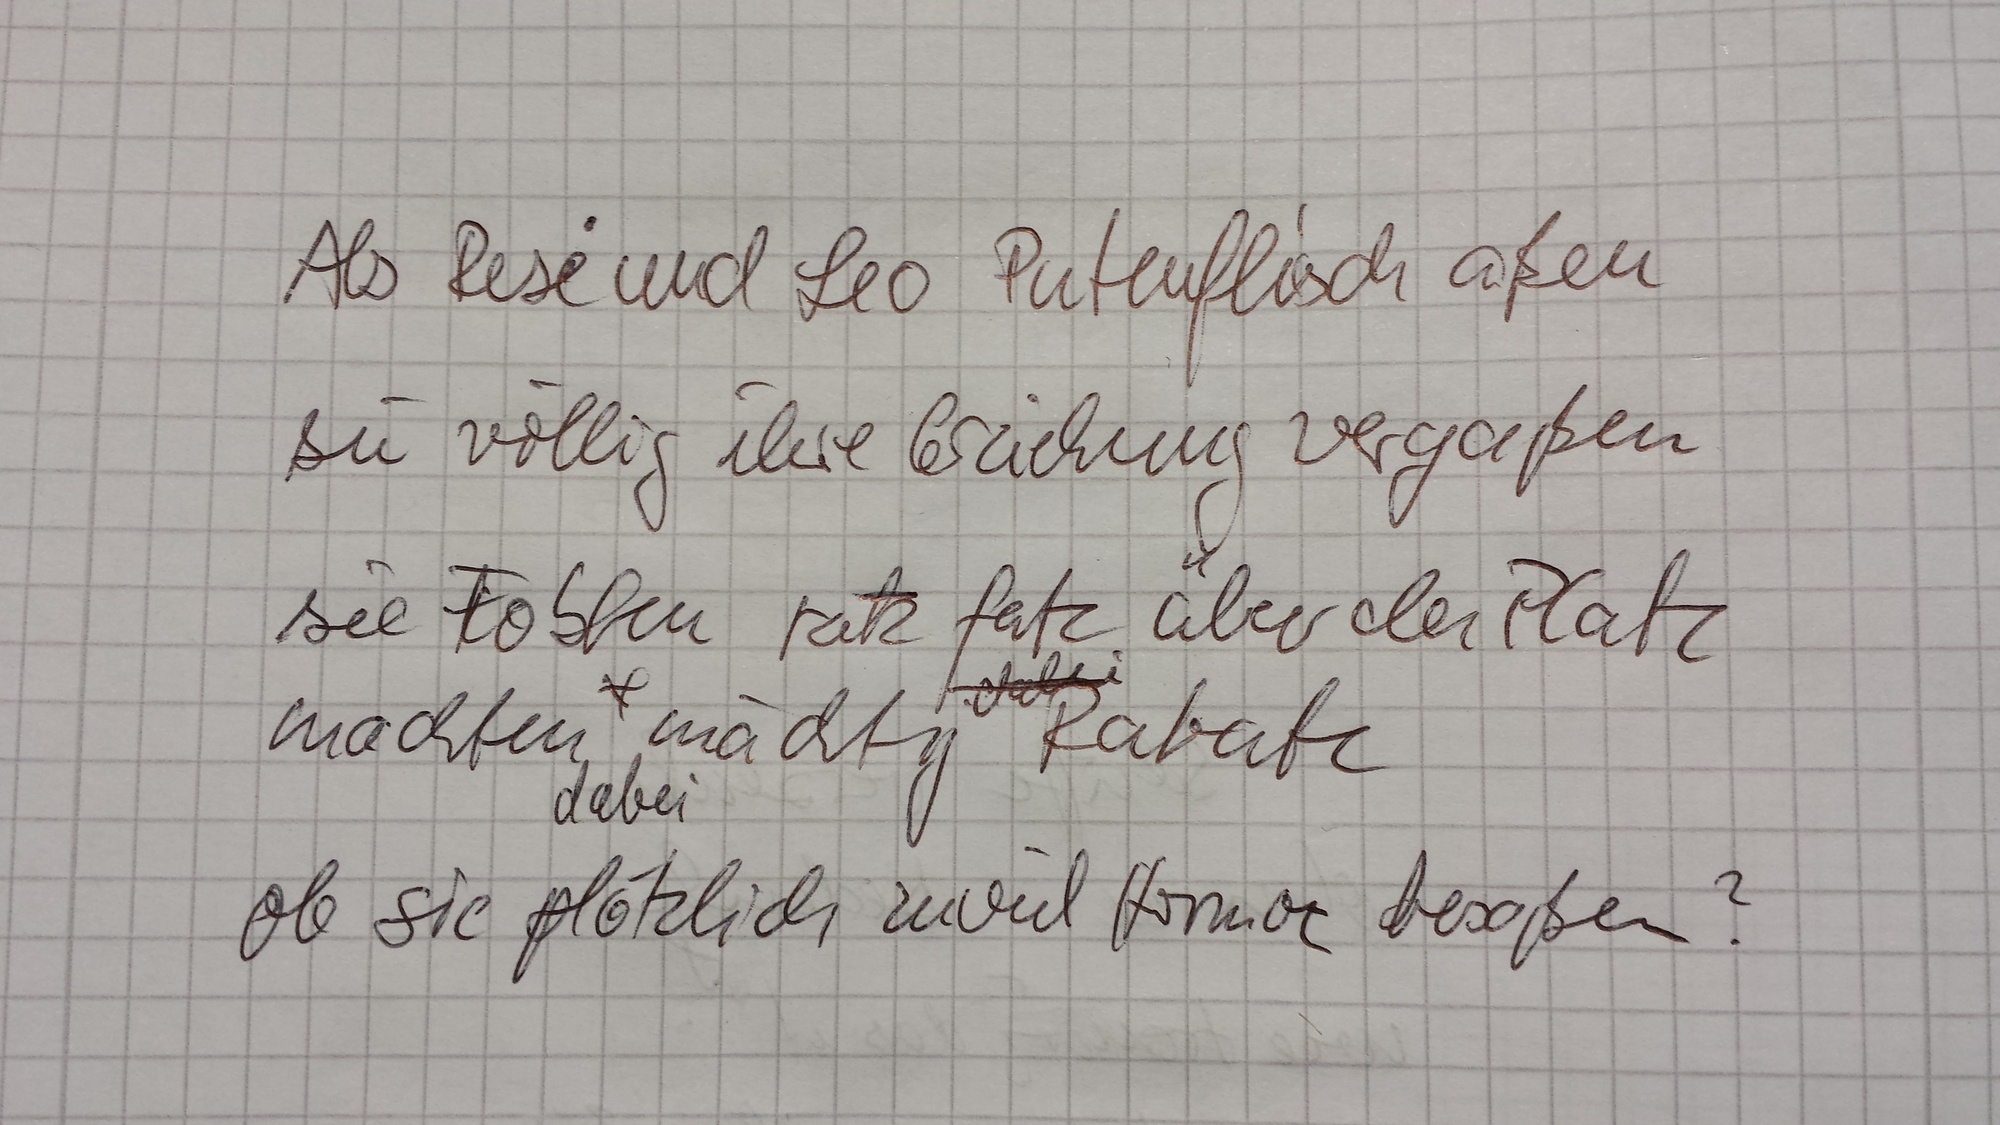 Als Resi und Leo Putenfleisch aßen
sie völlig ihre Erziehung vergaßen
sie tobten ratz fatz über den Platz
dabei
machten * mächtig Rabatz
dabei
ob sie plötzlich zuviel Hormone besaßen?